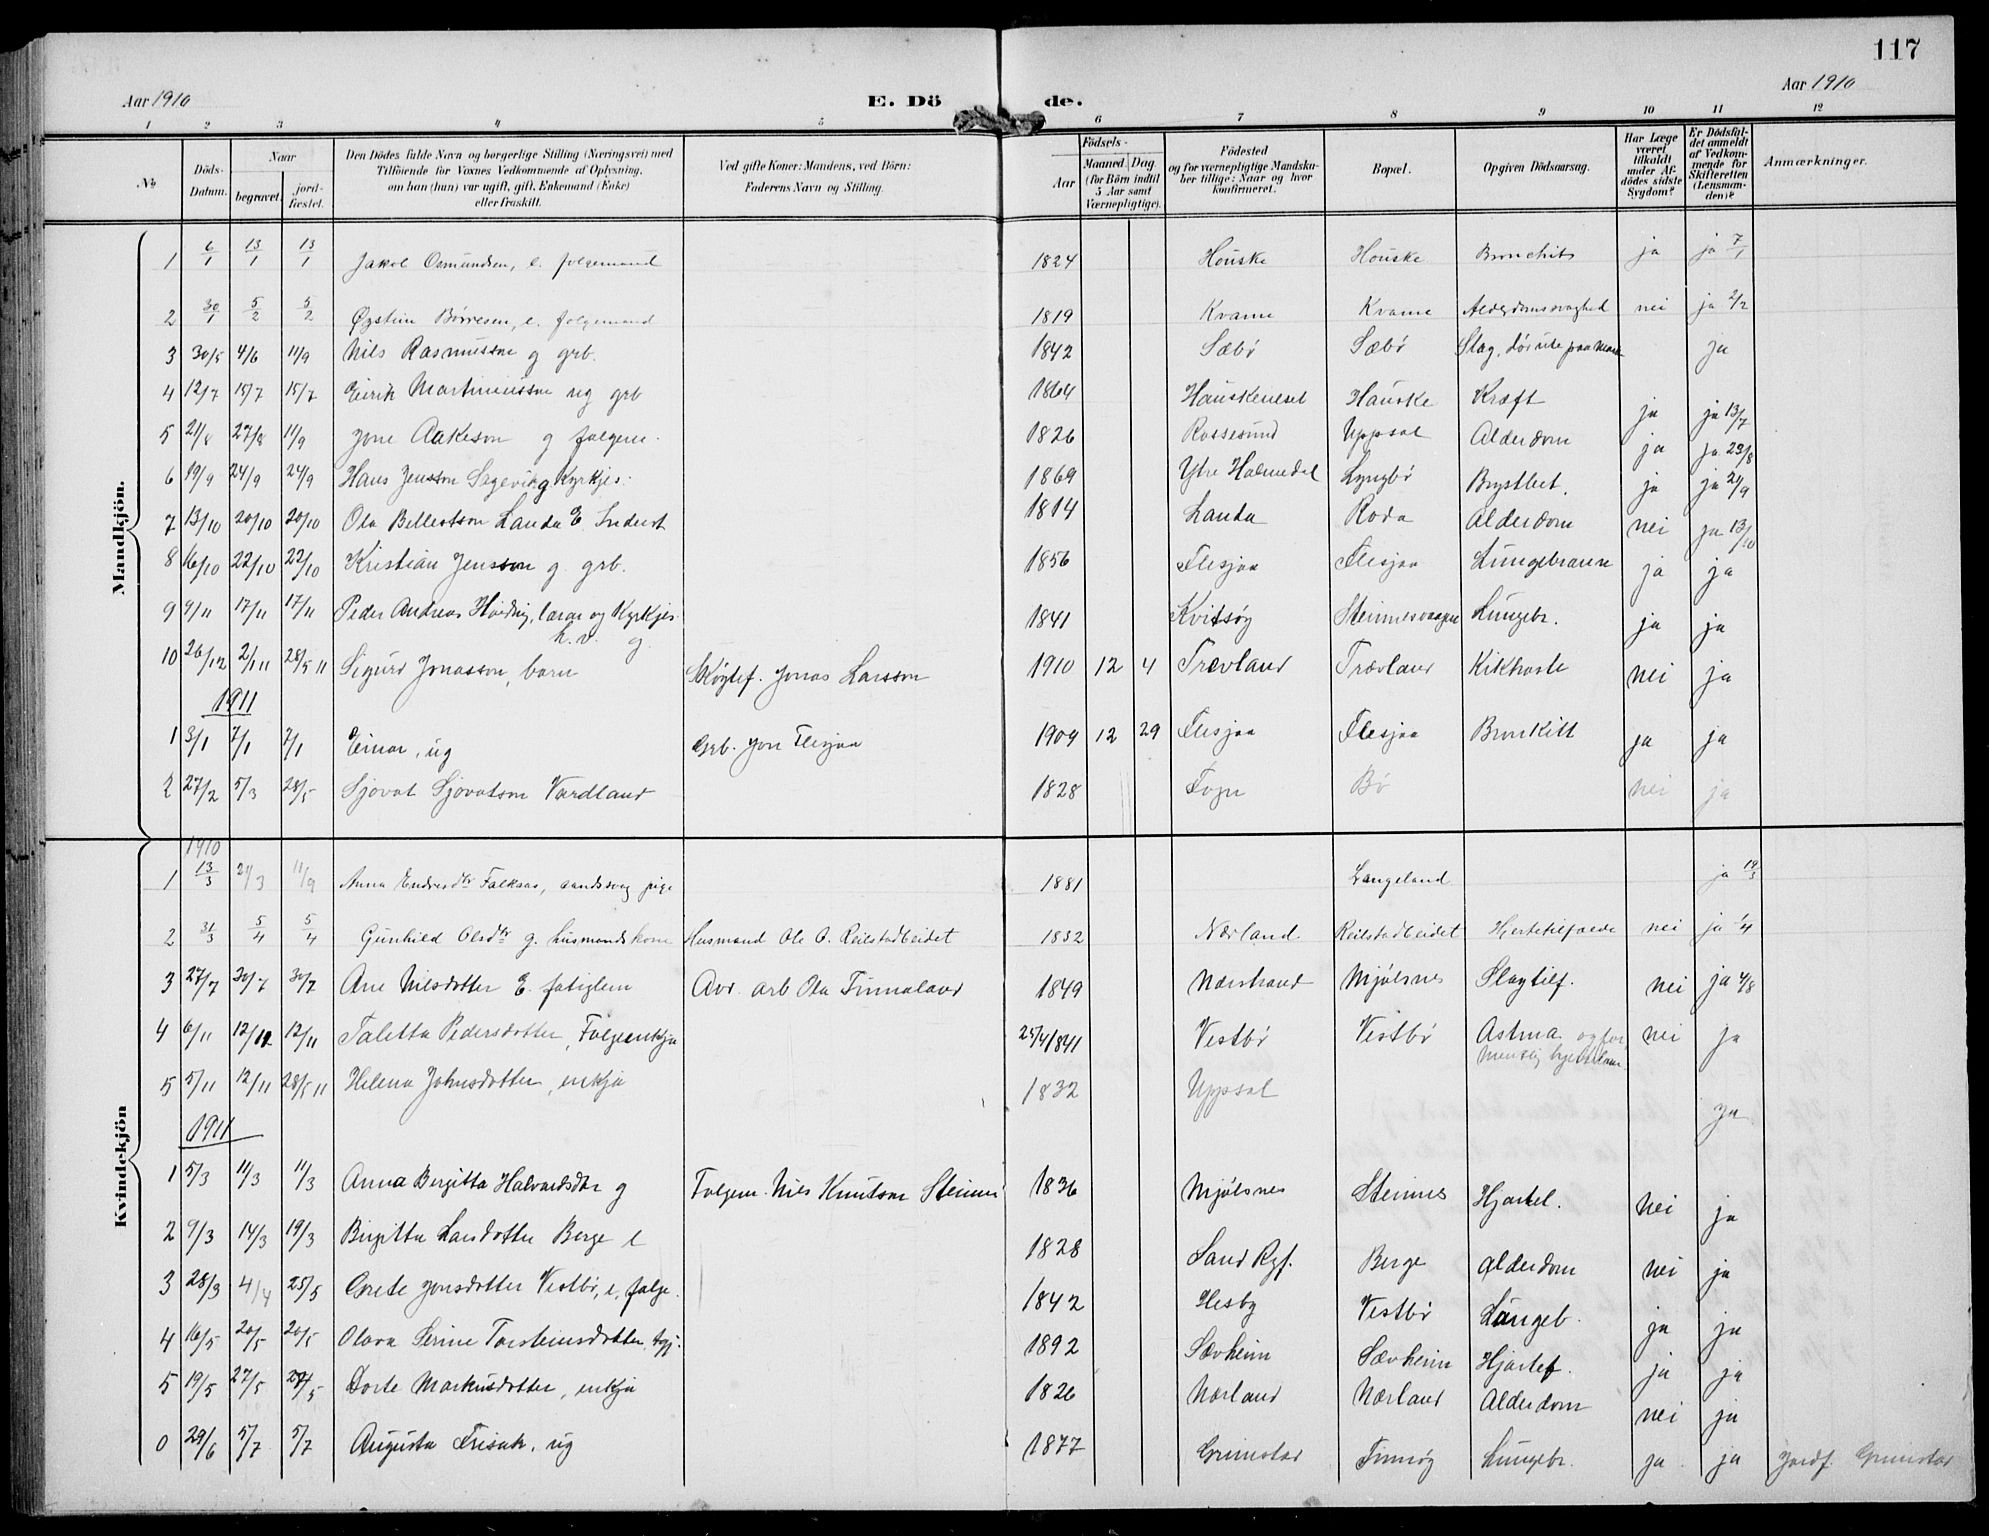 117
Aar 1910
E. Dö
de.
Aar 1910
1 2 3 4 5 6 7 8 9 10 11 12
No
Döds-Datum.
Naar
begravet.
jord-fæstet.
Den Dödes fulde Navn og borgerlige Stilling (Næringsvei) med
Tilföiende for Voxnes Vedkommende af Oplysning,
om han (hun) var ugift, gift, Enkemand (Enke)
eller fraskilt.
Ved gifte Koner: Mandens, ved Börn:
Faderens Navn og Stilling.
Födsels-
Aar
Maaned. Dag.
(for Börn indtil
5 Aar samt
Værnepligtige).
Födested
og for værnepligtige Mandska-
ber tillige: Naar og hvor
konfirmeret.
Bopæl.
Opgiven Dödsaarsag.
Har Læge
været
tilkaldt
under Af-
dödes sidste
Sygdom?
Er Dödsfal-
det anmeldt
af Vedkom-
mende for
Skifteretten
(Lensman-
den)?
Anmærkninger.
Mandkjön.
1 6/1 13/1 13/1 Jakob Osmundsen, e. folgemand 1824 Houske Houske Bronchit ja ja 7/1
2 30/1 5/2 5/2 Øystein Börresen, e. folgemand 1819 Kvame Kvame Alderdomssvaghed nei ja 2/2
3 30/5 4/6 11/9 Nils Rasmusson g grb. 1842 Sæbö Sæbö Slag, ja
4 12/7 15/7 15/7 Eirik Martiniusson ug grb 1864 Hauskeneset Hauske Kræft ja ja 13/7
5 21/8 27/8 11/9 Jone Aakeson g folgem. 1826 Rossesund Uppsal Alderdom ja ja 23/8
6 19/9 24/9 24/9 Hans Jensson Sagevik g Kyrkjes. 1869 Ytre Halmedal Lyngbö Brystbet. ja ja 21/9
7 13/10 20/10 20/10 Ola Landa E. Inderst 1814 Landa Roda Alderdom nei ja 13/10
8 16/10 22/10 22/10 Kristian Jensson g. grb. 1856 Flesjaa Flesjaa Lungebrann ja ja
9 9/11 17/11 17/11 Peder Andreas lærar og Kyrkjes. 1841 Kvitsøy Steinnesvaagen Lungebr. ja ja
h.v. g
10 26/12 2/1 11 28/5 11 Sigurd Jonasson, barn Jonas Larsson 1910 12 4 Trævland Trævland Kikhoste nei ja
1911
1 3/1 7/1 7/1 Einar, ug Grb. Jon Flesjaa 1909 12 29 Flesjaa Flesjaa Bronkitt ja ja
2 27/2 5/3 28/5 Sjovat Sjovatson Vardland 1828 Fogn Bö nei ja
Kvindekjön
1910
1 13/3 21/3 11/9 Anna Endresdtr Falkaas, aandssvag pige 1881 Langeland ja 19/3
2 31/3 5/4 5/4 Gunhild Olsdtr g. husmandskone Husmand Ole O. Reilstadbeidet 1832 Nærland. Reilstadbeidet Hjertetilfælde nei ja 1/4
3 27/7 30/7 30/7 Ane Nilsdotter E. fatiglem Avd. arb Ola Finnaland 1849 Nærstrand Mjölsnes Slagtilf. nei ja 4/8
4 6/11 12/11 12/11 Taletta Pedersdotter, Folgeenkja 25/4 1841 Vestbö Vestbö Astma og for nei ja
5 5/11 12/11 28/5 11 Helena Johnsdotter, enkja 1832 Uppsal ja
1911
1 5/3 11/3 11/3 Anna Birgitta Halvardsdtr g Folgem. Nils Knutson Steinnes 1836 Mjölsnes Steinnes Hjartel. nei ja
2 9/3 14/3 19/3 Birgitta Larsdotter Berge e 1828 Sand Ryf. Berge Alderdom nei ja
3 28/3 4/4 25/5 Grete Jonsdotter Vestbö, e, folge. 1842 Hesby Vestbö Lungeb. ja ja
4 16/5 20/5 20/5 Olava Serine Torsteinsdotter, 1892 Sævheim Sævheim Hjartef. ja ja
5 19/5 27/5 27/5 Dorte Markusdotter, enkja 1826 Nærland Nærland Alderdom nei ja
0 29/6 5/7 5/7 Augusta Frisak, ug 1877 Grimstad Finnöy Lungebr. ja ja Jordf. Grimstad